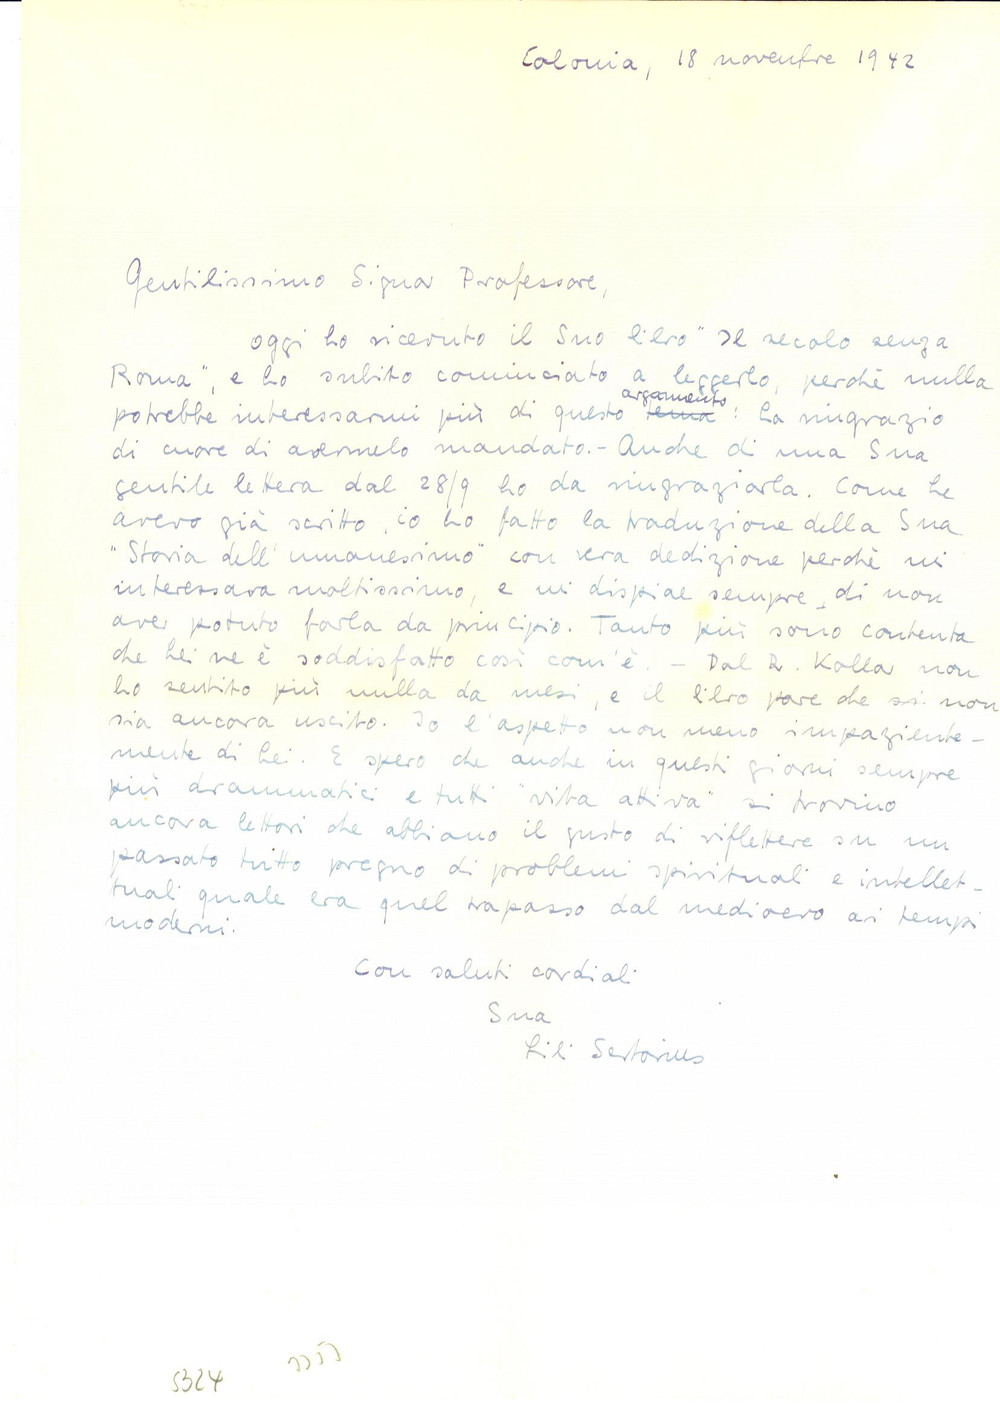 Colonia, 18 novembre 1942
Gentilissimo Signor Professore,
oggi ho ricevuto il Suo libro "Il secolo senza
Roma", e ho subito cominciato a leggerlo, perchè nulla
potrebbe interessarmi più di questo tema argomento: La ringrazio
di cuore di avermelo mandato. - Anche di una Sua
gentile lettera dal 28/9 ho da ringraziarla. Come Le
avevo già scritto, io ho fatto la traduzione della Sua
"Storia dell'umanesimo" con vera dedizione perchè mi
interessava moltissimo, e mi dispiace sempre, di non
aver potuto farla da principio. Tanto più sono contenta
che Lei ne è soddisfatto così com'è. - Dal D. Kollar non
ho sentito più nulla da mesi, e il libro pare che non
sia ancora uscito. Io l'aspetto non meno impaziente-
mente di Lei. E spero che anche in questi giorni sempre
più drammatici e tutti "vita attiva" si trovino
ancora lettori che abbiano il gusto di riflettere su un
passato tutto pregno di problemi spirituali e intellet-
tuali quale era quel trapasso dal medioevo ai tempi
moderni.
Con saluti cordiali
Sua
Lili Sertorius
5324